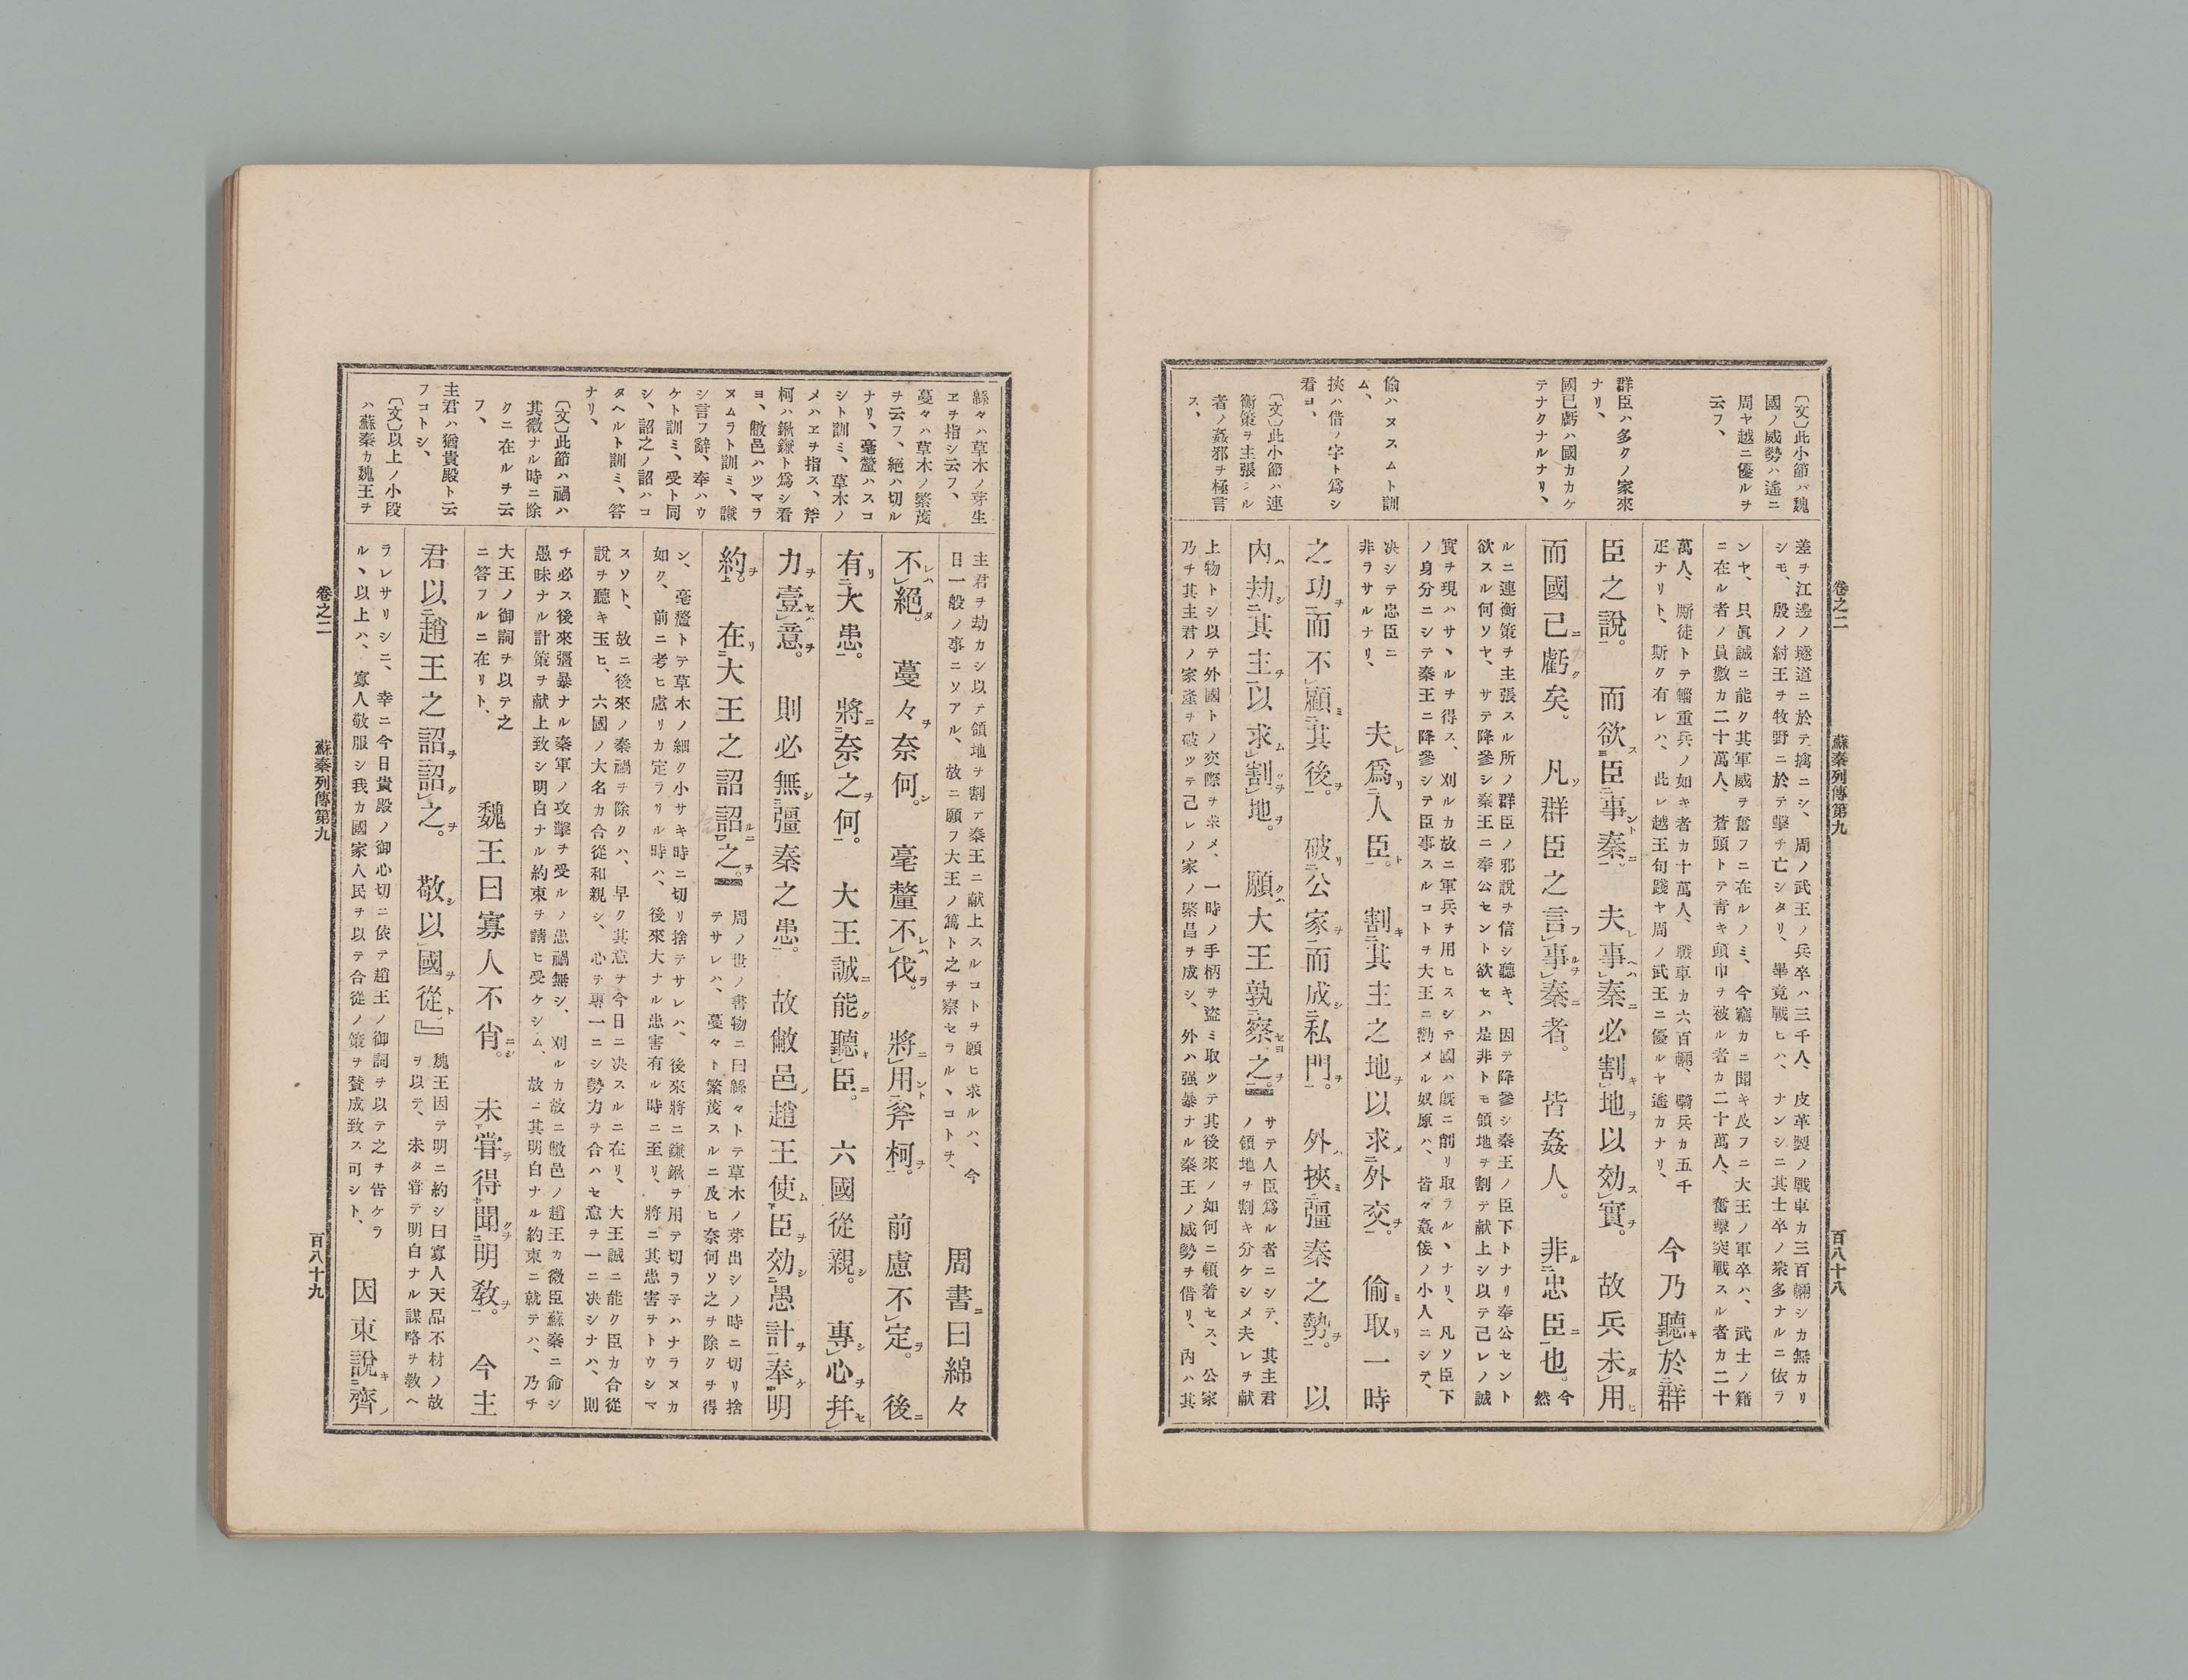 卷之二　蘇秦列傳第九　百八十八
〔文〕此小節ハ魏
國ノ威勢ハ遙ニ
周ヤ越ニ優ルヲ
云フ、
群臣ハ多クノ家來
ナリ、
國已虧ハ國カカケ
テナクナルナリ、
偸ハヌスムト訓
ム、
挾ハ借ノ字ト爲シ
看ヨ、
〔文〕此小節ハ連
衡策ヲ主張スル
者ノ姦邪ヲ極言
ス、
差ヲ江邊ノ墜道ニ於テ擒ニシ、周ノ武王ノ兵卒ハ三千人、皮革製ノ戰車カ三百輛シカ無カリ
シモ、殷ノ紂王ヲ牧野ニ於テ擊チ亡シタリ、畢竟戰ヒハ、ナンシニ其士卒ノ衆多ナルニ依ラ
ンヤ、只眞誠ニ能ク其軍威ヲ奮フニ在ルノミ、今竊カニ聞キ及フニ大王ノ軍卒ハ、武士ノ籍
ニ在ル者ノ員數カ二十萬人、蒼頭トテ靑キ頭巾ヲ被ル者カ二十萬人、奮擊突戰スル者カ二十
萬人、厮徒トテ輜重兵ノ如キ者カ十萬人、戰車カ六百輛、騎兵カ五千
疋ナリト、斯ク有レハ、此レ越王句踐ヤ周ノ武王ニ優ルヤ遙カナリ、
今乃聽於群
臣之說。而欲臣事秦。夫事秦必割地以効實。故兵未用
而國已虧矣。凡群臣之言事秦者。皆姦人。非忠臣也。
今
然
ルニ連衡策ヲ主張スル所ノ群臣ノ邪說ヲ信シ聽キ、因テ降參シ秦王ノ臣下トナリ奉公セント
欲スル何ソヤ、サテ降參シ秦王ニ奉公セント欲セハ是非トモ領地ヲ割テ献上シ以テ己レノ誠
實ヲ現ハサヽルヲ得ス、刈ルカ故ニ軍兵ヲ用ヒスシテ國ハ既ニ削リ取ラルヽナリ、凡ソ臣下
ノ身分ニシテ秦王ニ降參シテ臣事スルコトヲ大王ニ勸メル奴原ハ、皆々姦倿ノ小人ニシテ、
决シテ忠臣ニ
非ラサルナリ、
夫爲人臣。割其主之地以求外交。偷取一時
之功而不顧其後。破公家而成私門。外挾彊秦之勢。以
內劫其主以求割地。願大王孰察之。
サテ人臣爲ル者ニシテ、其主君
ノ領地ヲ割キ分ケシメ夫レヲ献
上物トシ以テ外國トノ交際ヲ求メ、一時ノ手柄ヲ盜ミ取ツテ其後來ノ如何ニ頓着セス、公家
乃チ其主君ノ家產ヲ破ツテ己レノ家ノ繁昌ヲ成シ、外ハ强暴ナル秦王ノ威勢ヲ借リ、內ハ其
緜々ハ草木ノ芽生
ヱヲ指シ云フ、
蔓々ハ草木ノ繁茂
ヲ云フ、絕ハ切ル
ナリ、毫釐ハスコ
シト訓ミ、草木ノ
メハヱヲ指ス、斧
柯ハ鍬鎌ト爲シ看
ヨ、敝邑ハツマラ
ヌムラト訓ミ、謙
シ言フ辭、奉ハウ
ケト訓ミ、受ト同
シ、詔之ノ詔ハコ
タヘルト訓ミ、答
ナリ、
〔文〕此節ハ禍ハ
其微ナル時ニ除
クニ在ルヲ云
フ、
主君ハ猶貴殿ト云
フコトシ、
〔文〕以上ノ小段
ハ蘇秦カ魏王ヲ
主君ヲ劫カシ以テ領地ヲ割テ秦王ニ献上スルコトヲ願ヒ求ルハ、今
日一般ノ事ニソアル、故ニ願フ大王ノ篤ト之ヲ察セラルヽコトヲ、
周書曰綿々
不絕。蔓々奈何。毫釐不伐。將用斧柯。前慮不定。後
有大患。將奈之何。大王誠能聽臣。六國從親。專心幷
力壹意。則必無彊秦之患。故敝邑趙王使臣効愚計奉明
約。在大王之詔詔之。
周ノ世ノ書物ニ曰緜々トテ草木ノ芽出シノ時ニ切リ捨
テサレハ、蔓々ト繁茂スルニ及ヒ奈何ソ之ヲ除クヲ得
ン、毫釐トテ草木ノ細ク小サキ時ニ切リ捨テサレハ、後來將ニ鎌鍬ヲ用テ切ラ子ハナラヌカ
如ク、前ニ考ヒ慮リカ定ラリル時ハ、後來大ナル患害有ル時ニ至リ、將ニ其患害ヲトウシマ
スソト、故ニ後來ノ秦禍ヲ除クハ、早ク其意ヲ今日ニ决スルニ在リ、大王誠ニ能ク臣カ合從
說ヲ聽キ玉ヒ、六國ノ大名カ合從和親シ、心テ專一ニシ勢力ヲ合ハセ意ヲ一ニ决シナハ、則
チ必ス後來彊暴ナル秦軍ノ攻擊ヲ受ルノ患禍無シ、刈ルカ故ニ敝邑ノ趙王カ微臣蘇秦ニ命シ
愚昧ナル計策ヲ献上致シ明白ナル約束ヲ請ヒ受ケシム、故ニ其明白ナル約束ニ就テハ、乃チ
大王ノ御詞ヲ以テ之
ニ答フルニ在リト、
魏王曰寡人不肖。未甞得聞明敎。今主
君以趙王之詔詔之。敬以國從』
魏王因テ明ニ約シ曰寡人天品不材ノ故
ヲ以テ、未タ甞テ明白ナル謀略ヲ敎ヘ
ラレサリシニ、幸ニ今日貴殿ノ御心切ニ依テ趙王ノ御詞ヲ以テ之ヲ告ケラ
ルヽ以上ハ、寡人敬服シ我カ國家人民ヲ以テ合從ノ策ヲ賛成致ス可シト、
因東說齊
卷之二　蘇秦列傳第九　百八十九